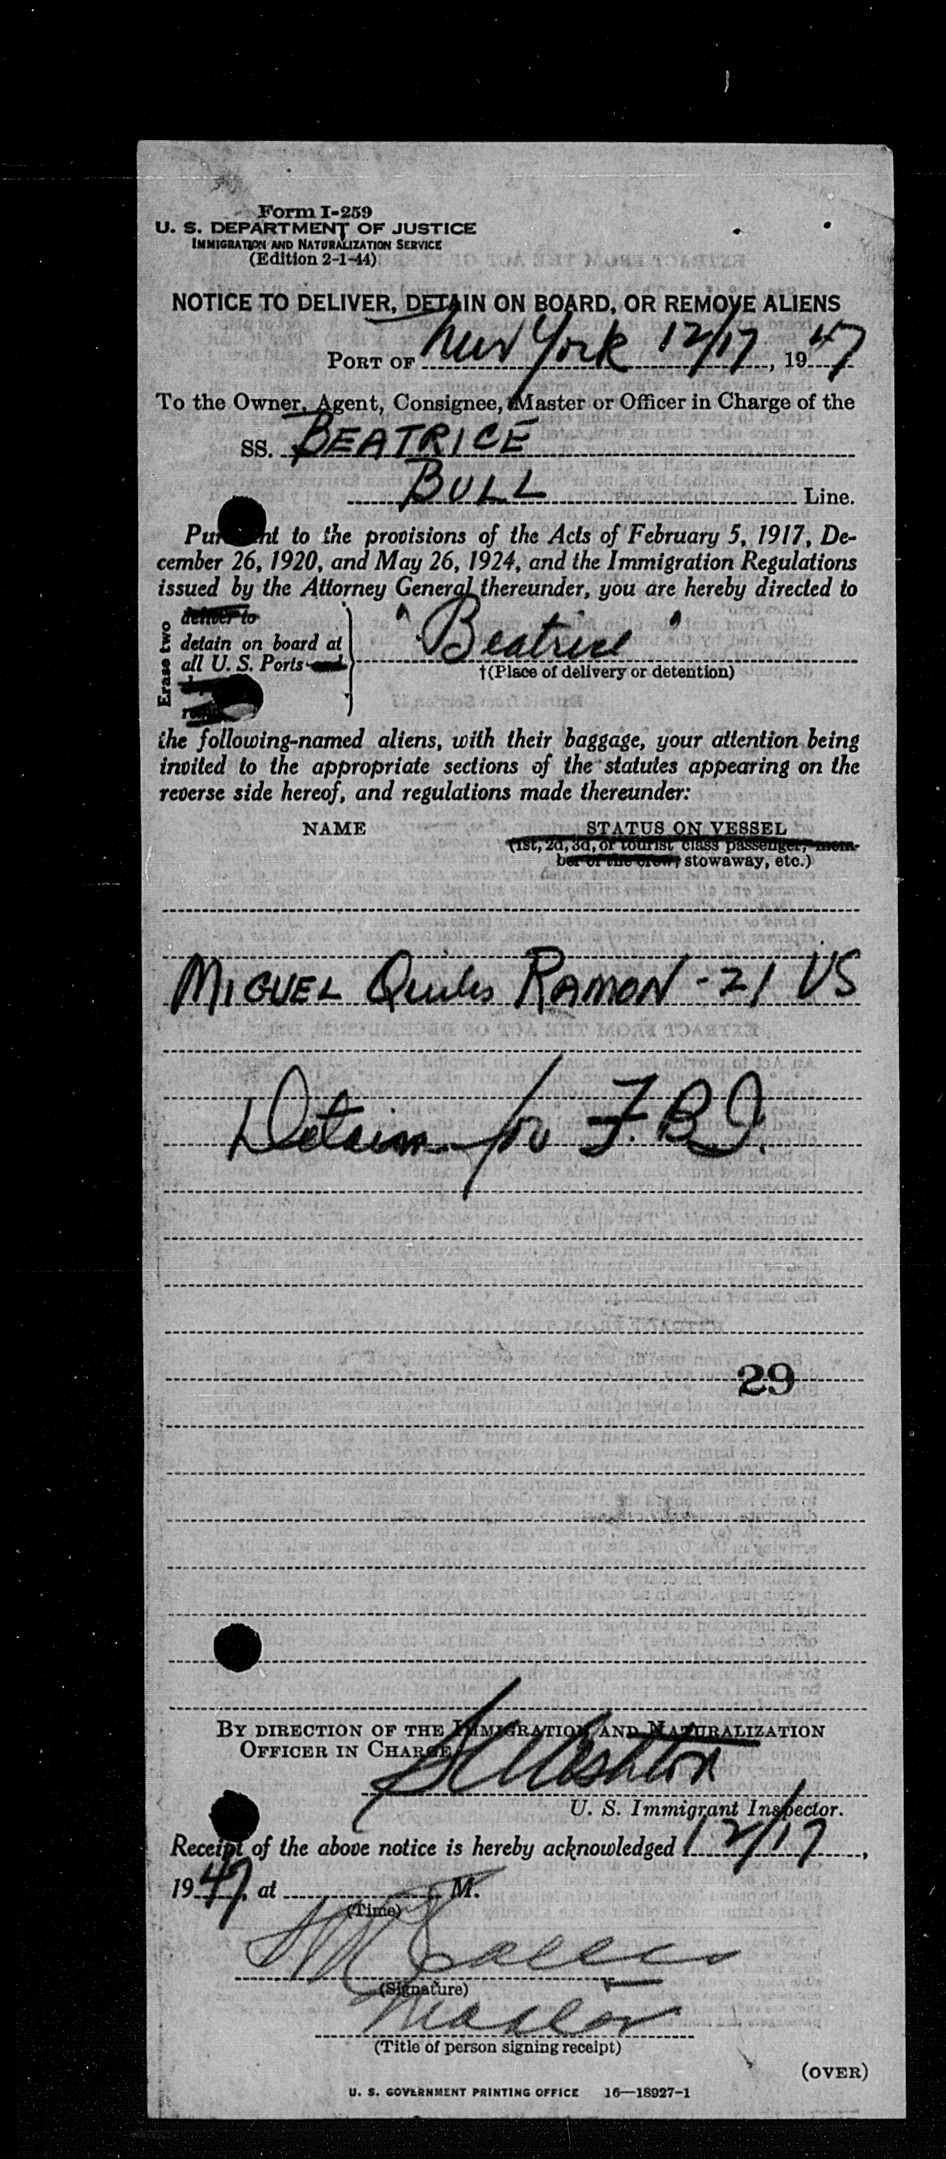 Form I-259
U. S. DEPARTMENT OF JUSTICE
IMMIGRATION AND NATURALIZATION SERVICE
(Edition 2-1-44)
NOTICE TO DELIVER, DETAIN ON BOARD, OR REMOVE ALIENS
PORT OF New York 12/17, 1947
To the Owner, Agent, Consignee, Master or Officer in Charge of the
SS. BEATRICE
BULL Line.
Pursuant to the provisions of the Acts of February 5, 1917, De-
cember 26, 1920, and May 26, 1924, and the Immigration Regulations
issued by the Attorney General thereunder, you are hereby directed to
Erase two
deliver to
detain on board at
all U. S. Ports and
"Beatrice"
†(Place of delivery or detention)
the following-named aliens, with their baggage, your attention being
invited to the appropriate sections of the statutes appearing on the
reverse side hereof, and regulations made thereunder:
NAME STATUS ON VESSEL
(1st, 2d, 3d, or tourist class passenger, mem-
ber of the crew, stowaway, etc.)
MIGUEL Quiles RAMON - 21 US
Detain for F.B.I.
29
BY DIRECTION OF THE IMMIGRATION AND NATURALIZATION
OFFICER IN CHARGE
U. S. Immigrant Inspector.
Receipt of the above notice is hereby acknowledged 12/17,
1947, at M.
(Time)
(Signature)
Master
(Title of person signing receipt)
(OVER)
U. S. GOVERNMENT PRINTING OFFICE 16—18927-1